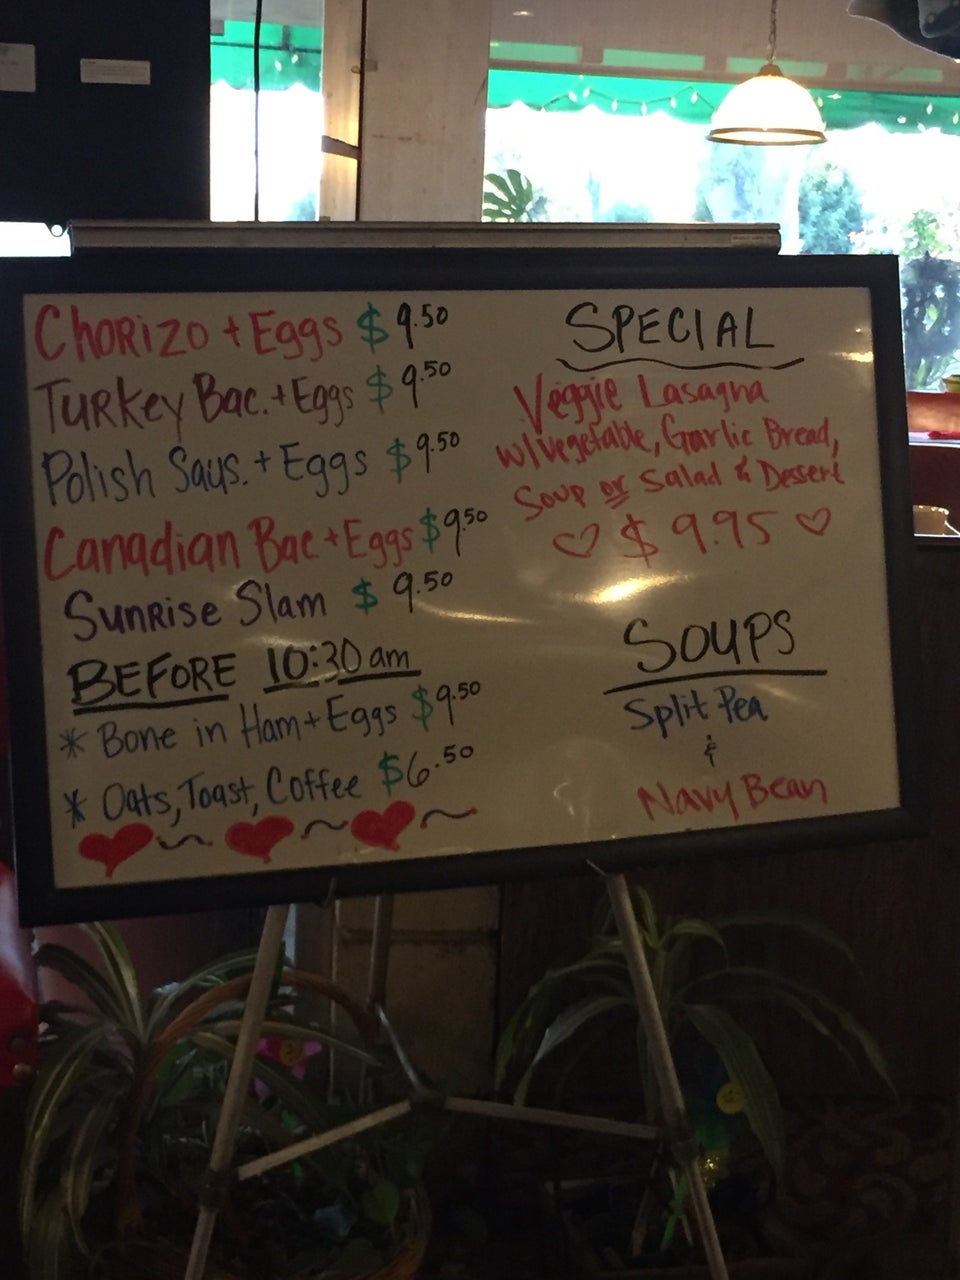 Chorizo + Eggs $9.50
Turkey Bac. + Eggs $9.50
Polish Saus. + Eggs $9.50
Canadian Bac. + Eggs $9.50
Sunrise Slam $9.50
BEFORE 10:30am
* Bone in Ham + Eggs $9.50
* Oats, Toast, Coffee $6.50
SPECIAL
Veggie Lasagna
w/Vegetable, Garlic Bread,
Soup or Salad & Dessert
$9.95
SOUPS
Split Pea
&
Navy Bean